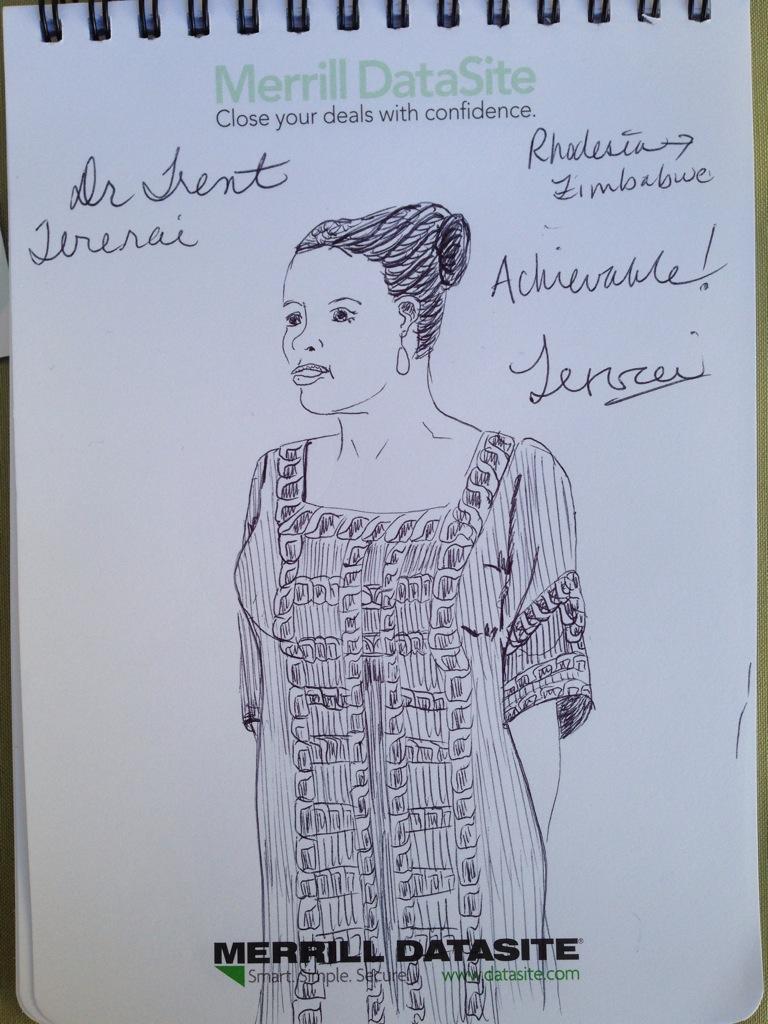 Merrill DataSite
Close your deals with confidence.
Dr Trent
Tererai
Rhodesia →
Zimbabwe
Achievable!
Tererai
MERRILL DATASITE®
Smart. Simple. Secure.
www.datasite.com